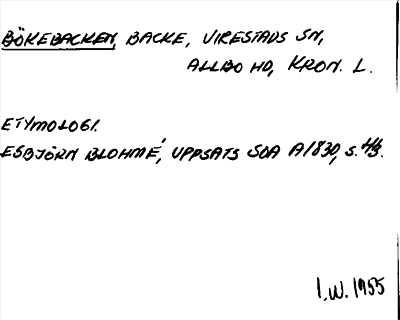 BÖKEBACKEN, BACKE, VIRESTADS SN,
ALLBO HD, KRON. L.
ETYMOLOGI.
ESBJÖRN BLOHMÉ, UPPSATS SOA A1830, s. 43.
I.W. 1955